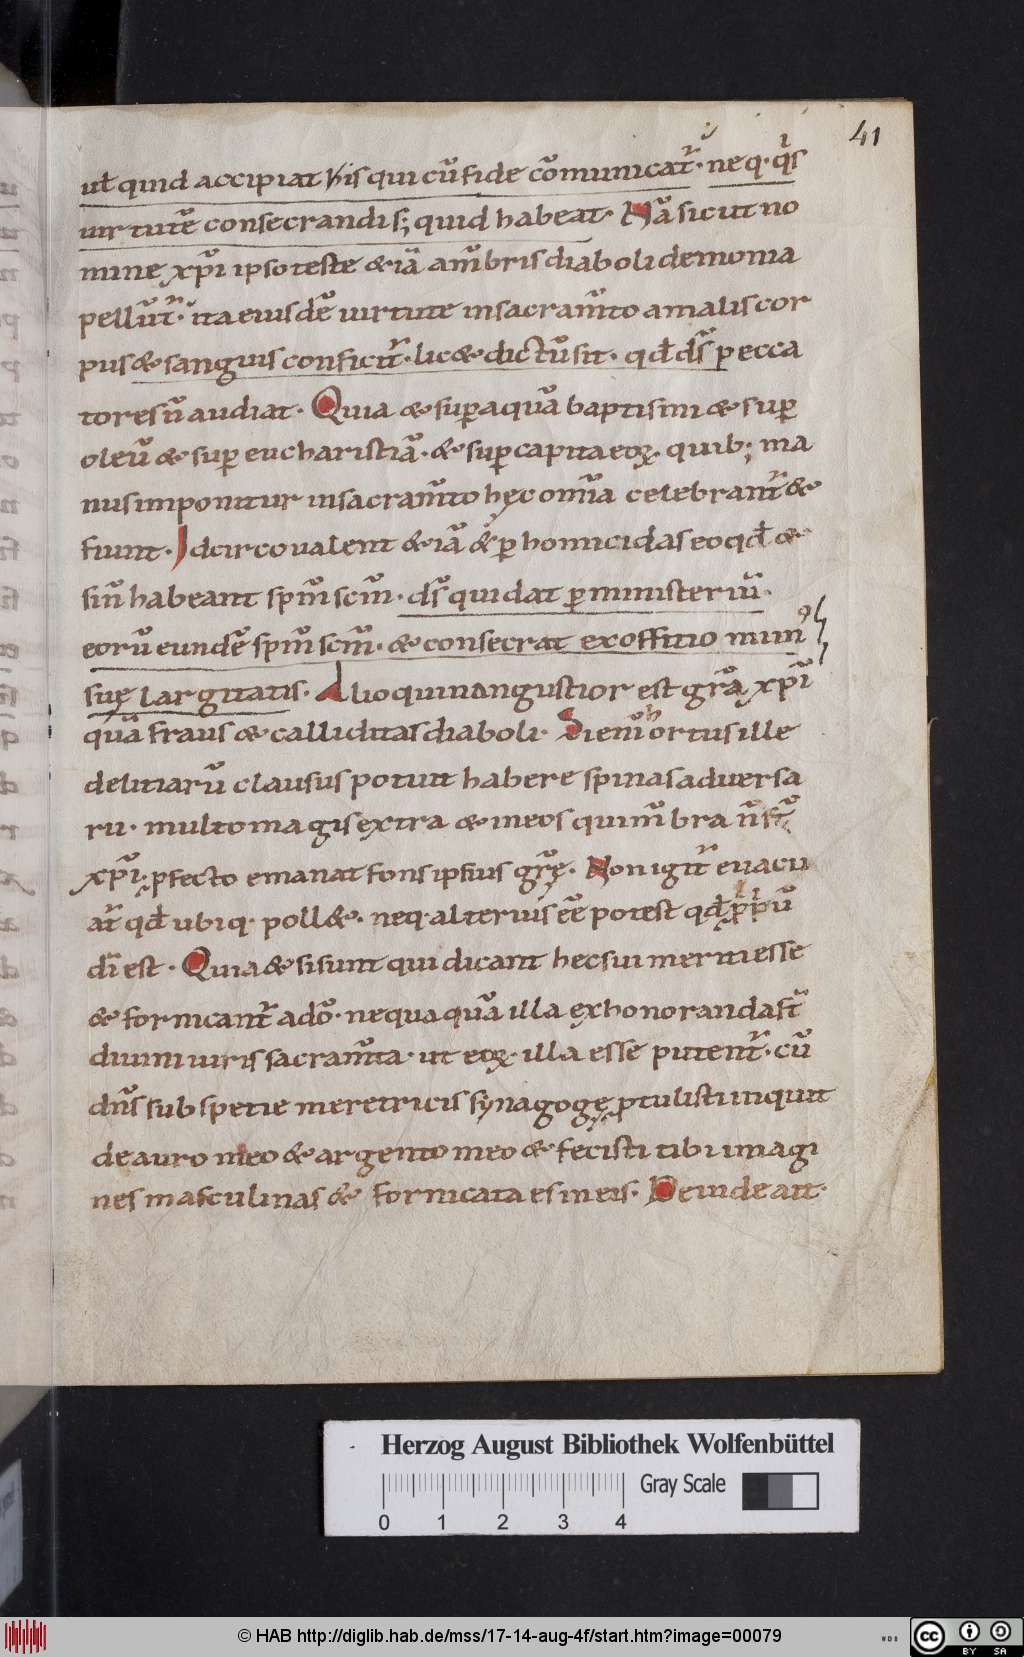 41
uł quid accipiat his qui cū fide cōmunicat᷑. neq. qͥs
uirtutē consecrandis; quid habeat. Nā sicut no
mine xp̄i ipso teste & iā a mēbris diaboli demonia
pellūt᷑. ita eiusdē uirtute in sacram̄to a malis cor
pus & sanguis conficit᷑. lic& dictū sit. qđ d̄s pecca
tores n̄ audiat. Quia & suꝑ aquā baptismi & suꝑ
oleū & suꝑ eucharistiā. & suꝑ capita eoꝝ. quib; ma
nus imponitur in sacram̄to hęc om̄ia celebrant᷑ &
fiunt. Idcirco ualent & iā & ꝑ homicidas eo qđ &
sin̄ habeant sp̄m sc̄m. d̄s qui dat ꝑ ministeriū
eorū eundē sp̄m sc̄m. & consecrat ex offitio muni
suę largitatis. Alioquin angustior est gr̄a xp̄i
quā fraus & calliditas diaboli. Si eni᷑ hortus ille
delitiarū clausus potuit habere spinas aduersa
ru. multo magis extra & in eos qui mēbra n̄ st̄
xp̄i. ꝓfecto emanat fons ipsius gr̄ę. Non igit᷑ euacu
at᷑ qđ ubiq. poll&. neq. alterius eē potest qđ ꝓpͥū
dī est. Quia & si sunt qui dicant hec sui meriti esse
& fornicant᷑ a dō. nequaquā illa exhonoranda st̄
diuini iuris sacram̄ta. ut eoꝝ illa esse putent᷑. cū
dn̄s sub spetie meretricis synagogę ꝓtulisti inquit
de auro meo & argento meo & fecisti tibi imagi
nes masculinas & fornicata es in eis. Deinde ait.
Herzog August Bibliothek Wolfenbüttel
Gray Scale
0 1 2 3 4
© HAB http://diglib.hab.de/mss/17-14-aug-4f/start.htm?image=00079
WDB
cc BY SA